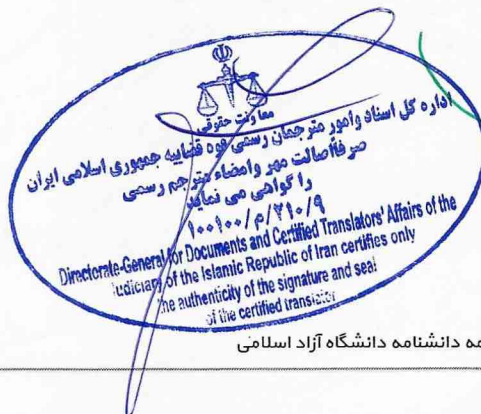 معاونت حقوقی
اداره کل اسناد وامور مترجمان رسمی قوه قضاییه جمهوری اسلامی ایران
صرفاً اصالت مهر وامضاء مترجم رسمی
را گواهی می نماید
۱۰۰۱۰۰/م/۲۱۰/۹
Directorate-General for Documents and Certified Translators' Affairs of the
Judiciary of the Islamic Republic of Iran certifies only
the authenticity of the signature and seal
of the certified translator
دانشنامه دانشگاه آزاد اسلامی